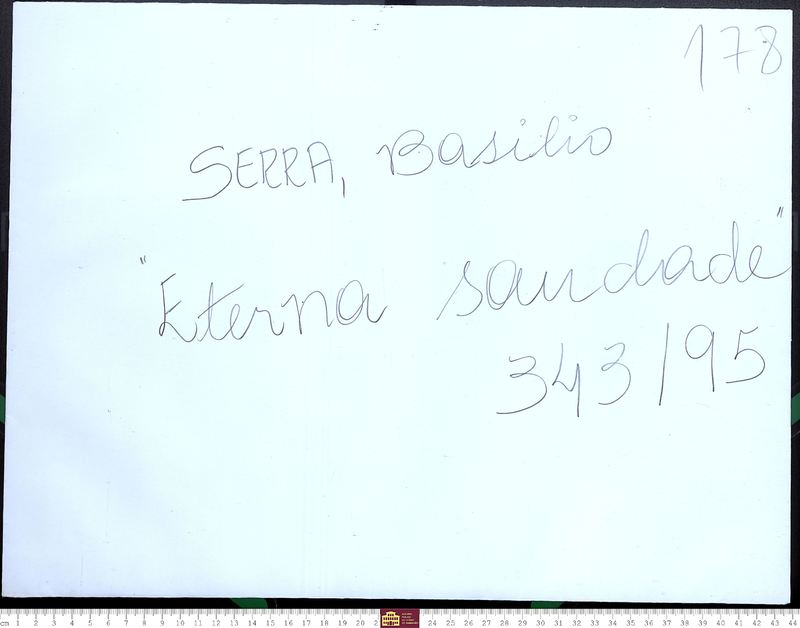 178
SERRA, Basilio
"Eterna saudade"
343/95
cm 1 2 3 4 5 6 7 8 9 10 11 12 13 14 15 16 17 18 19 20 2 24 25 26 27 28 29 30 31 32 33 34 35 36 37 38 39 40 41 42 43 44